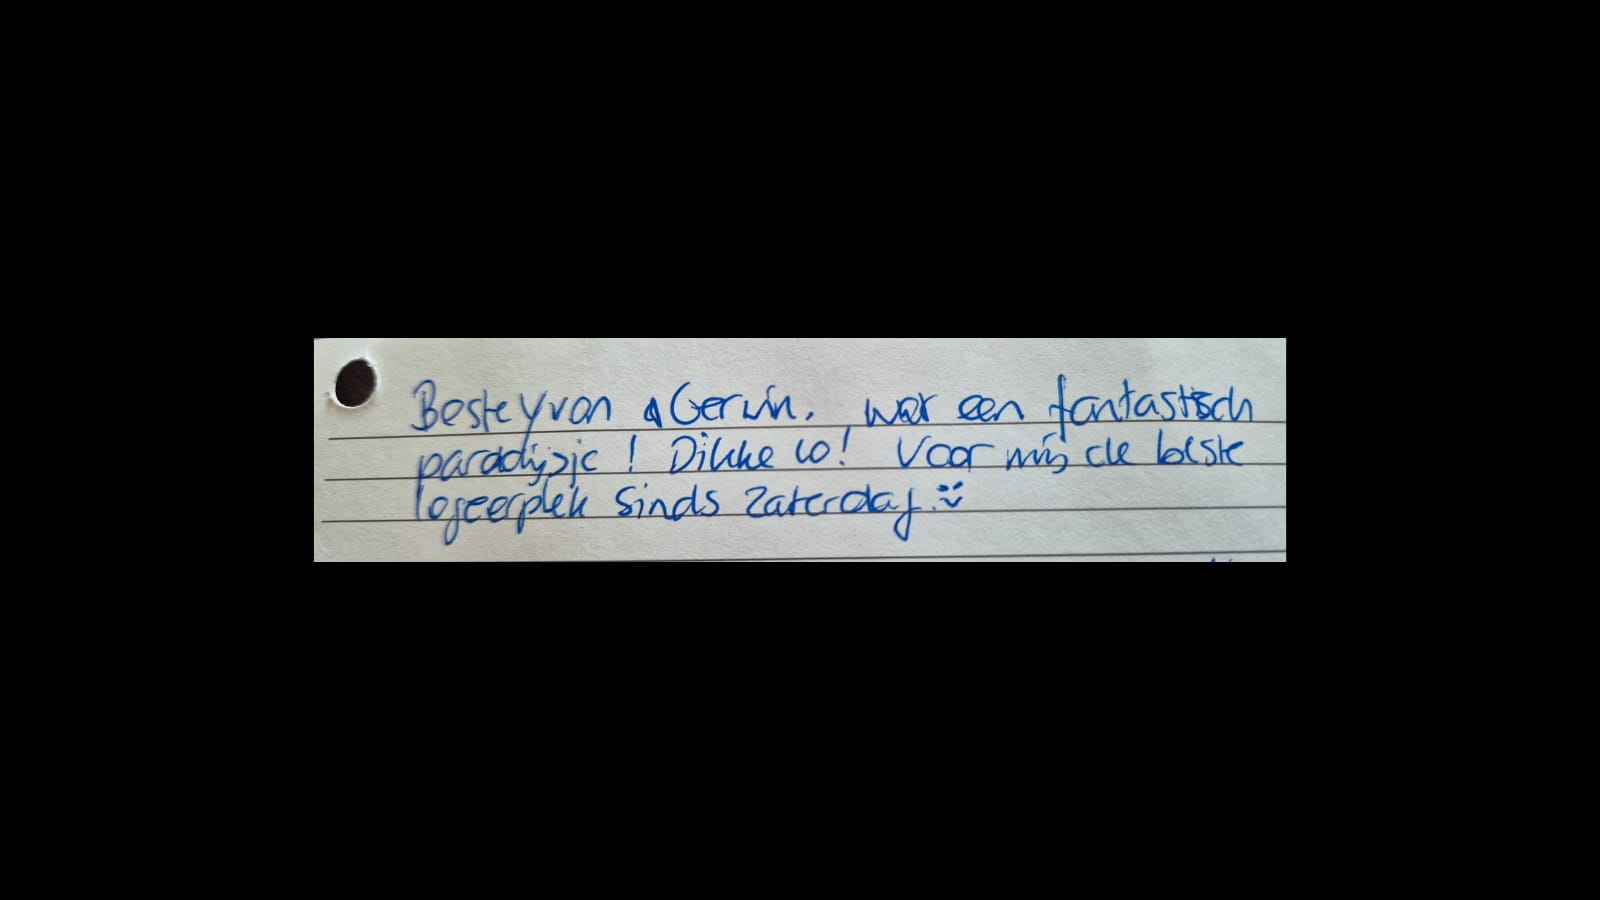 Beste Yvon & Gerwin, wat een fantastisch
paradijsje! Dikke 10! Voor mij de beste
logeerplek sinds zaterdag. :)